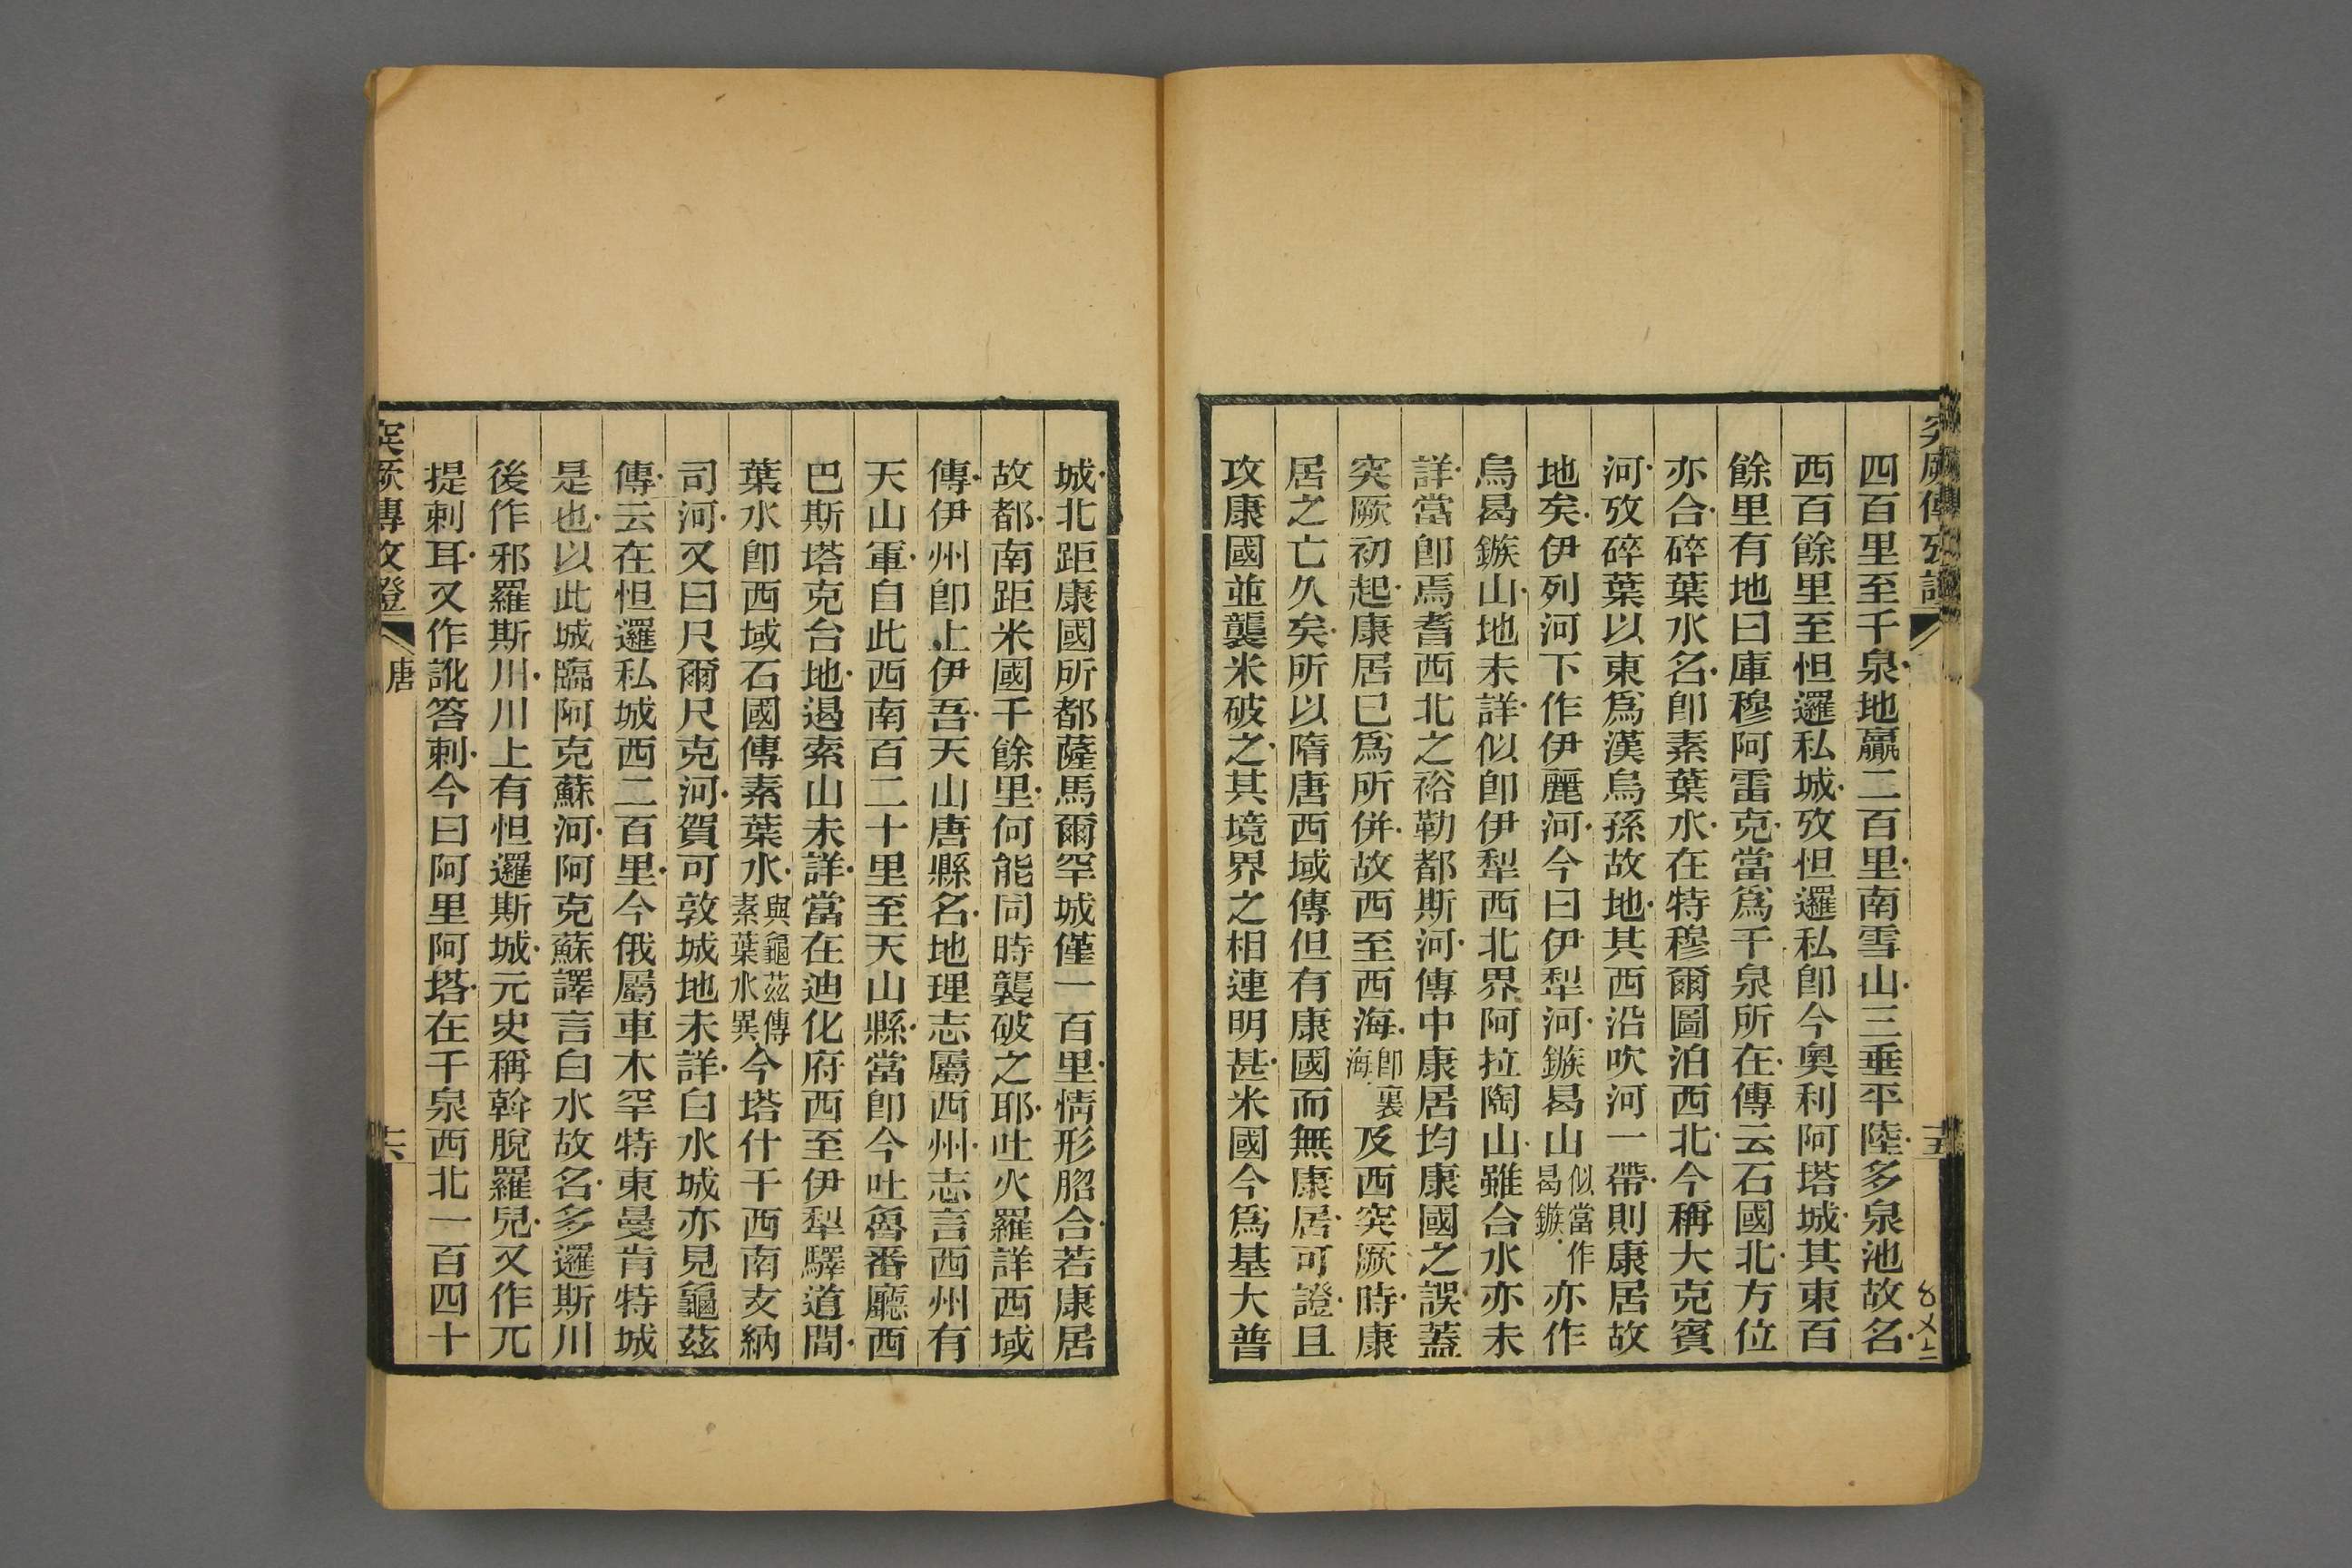 突厥傳攷證
十五
四百里至千泉地贏二百里南雪山三垂平陸多泉池故名
西百餘里至怛邏私城攷怛邏私卽今奧利阿塔城其東百
餘里有地曰庫穆阿雷克當爲千泉所在傳云石國北方位
亦合碎葉水名卽素葉水在特穆爾圖泊西北今稱大克賓
河攷碎葉以東爲漢烏孫故地其西沿吹河一帶則康居故
地矣伊列河下作伊麗河今曰伊犁河鏃曷山似當作曷鏃亦作
烏曷鏃山地未詳似卽伊犁西北界阿拉陶山雖合水亦未
詳當卽焉耆西北之裕勒都斯河傳中康居均康國之誤蓋
突厥初起康居已爲所併故西至西海卽裏海及西突厥時康
居之亡久矣所以隋唐西域傳但有康國而無康居可證且
攻康國並襲米破之其境界之相連明甚米國今爲基大普
城北距康國所都薩馬爾罕城僅一百里情形脗合若康居
故都南距米國千餘里何能同時襲破之耶吐火羅詳西域
傳伊州卽上伊吾天山唐縣名地理志屬西州志言西州有
天山軍自此西南百二十里至天山縣當卽今吐魯番廳西
巴斯塔克台地遏索山未詳當在迪化府西至伊犁驛道間
葉水卽西域石國傳素葉水與龜茲傳素葉水異今塔什干西南支納
司河又曰尺爾尺克河賀可敦城地未詳白水城亦見龜茲
傳云在怛邏私城西二百里今俄屬車木罕特東曼肯特城
是也以此城臨阿克蘇河阿克蘇譯言白水故名多邏斯川
後作邪羅斯川川上有怛邏斯城元史稱斡脫羅兒又作兀
提剌耳又作訛答剌今曰阿里阿塔在千泉西北一百四十
突厥傳攷證
唐
十六